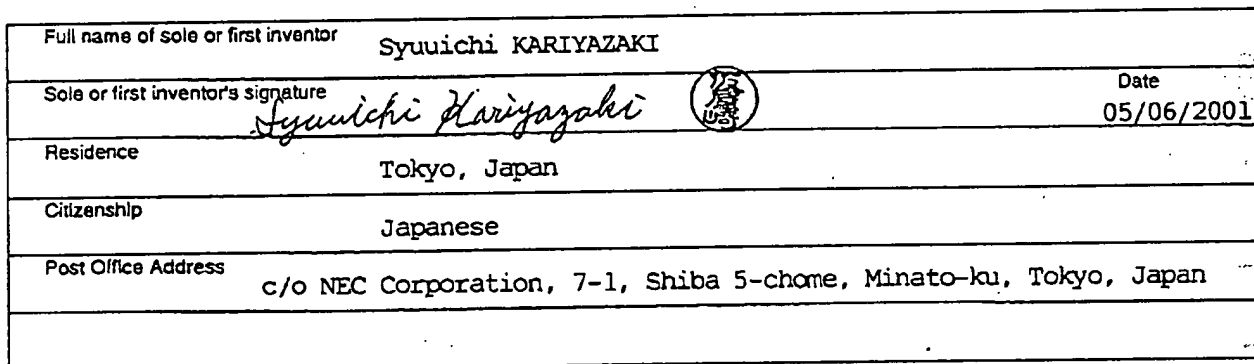 Full name of sole or first inventor Syuuichi KARIYAZAKI
Sole or first inventor's signature Date
Syuuichi Kariyazaki 05/06/2001
Residence
Tokyo, Japan
Citizenship
Japanese
Post Office Address
c/o NEC Corporation, 7-1, Shiba 5-chome, Minato-ku, Tokyo, Japan